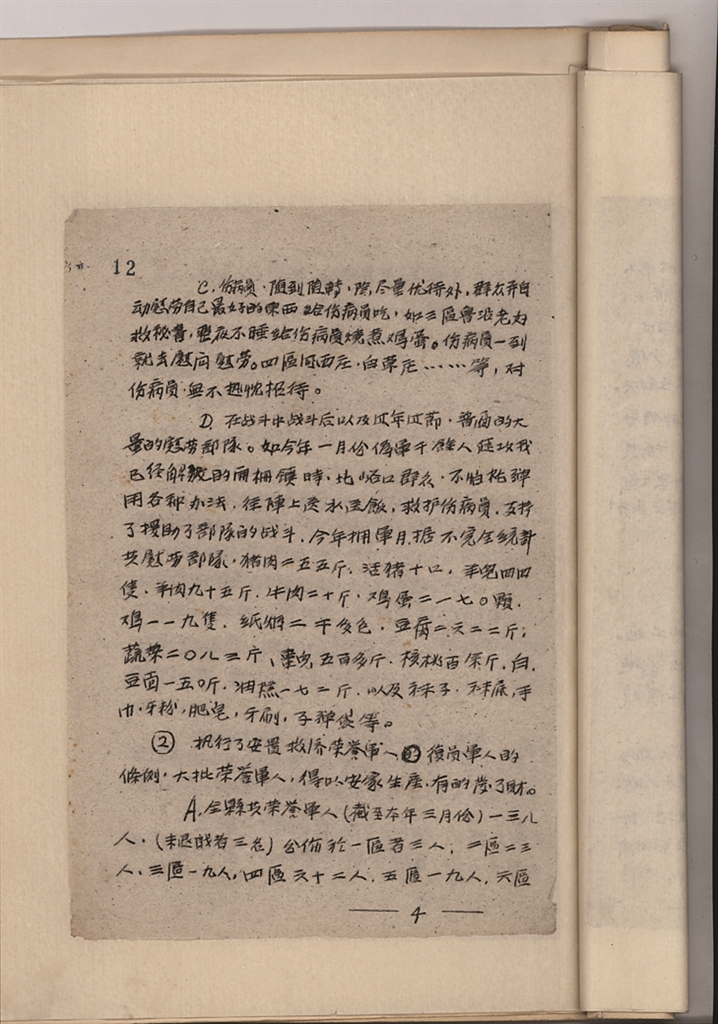 12
C. 伤病员·随到随转·除尽量优待外，群众并自
动慰劳自己最好的东西给伤病员吃，如三區鲁沿老妇
救秘书，整夜不睡给伤病员烧煮鸡蛋。伤病员一到
就去慰问慰劳。四區河西庄·白草庄……等，对
伤病员·無不热忱招待。
D. 在战斗中战斗后以及过年过節·普遍的大
量的慰劳部隊。如今年一月份偽軍千餘人进攻我
已经解放的兩栅镇時·北峪口群众·不怕枪弹
用各种办法，往陣上送水送飯，救护伤病员，支持
了援助了部隊的战斗．今年拥軍月．据不完全統計
共慰劳部隊·猪肉二五五斤．活猪十口，羊兒四四
隻．羊肉九十五斤．牛肉二十斤．鸡蛋二一七〇顆．
鸡一一九隻．纸烟二千多包．豆腐二六二二斤；
蔬菜二〇八三斤、棗兒五百多斤．核桃百余斤．白．
豆面一五〇斤．油糕一七二斤．以及袜子．袜底，手
巾．牙粉，肥皂，牙刷，子弹袋等。
② 执行了安置救济荣誉軍人復员軍人的
條例·大批荣誉軍人，得以安家生産·有的发了财。
A. 全縣共荣誉軍人（截至本年三月份）一三八
人．（未退战者三名）分佈於一區者三人；二區二三
人．三區一九人，四區六十二人．五區一九人，六區
—— 4 ——